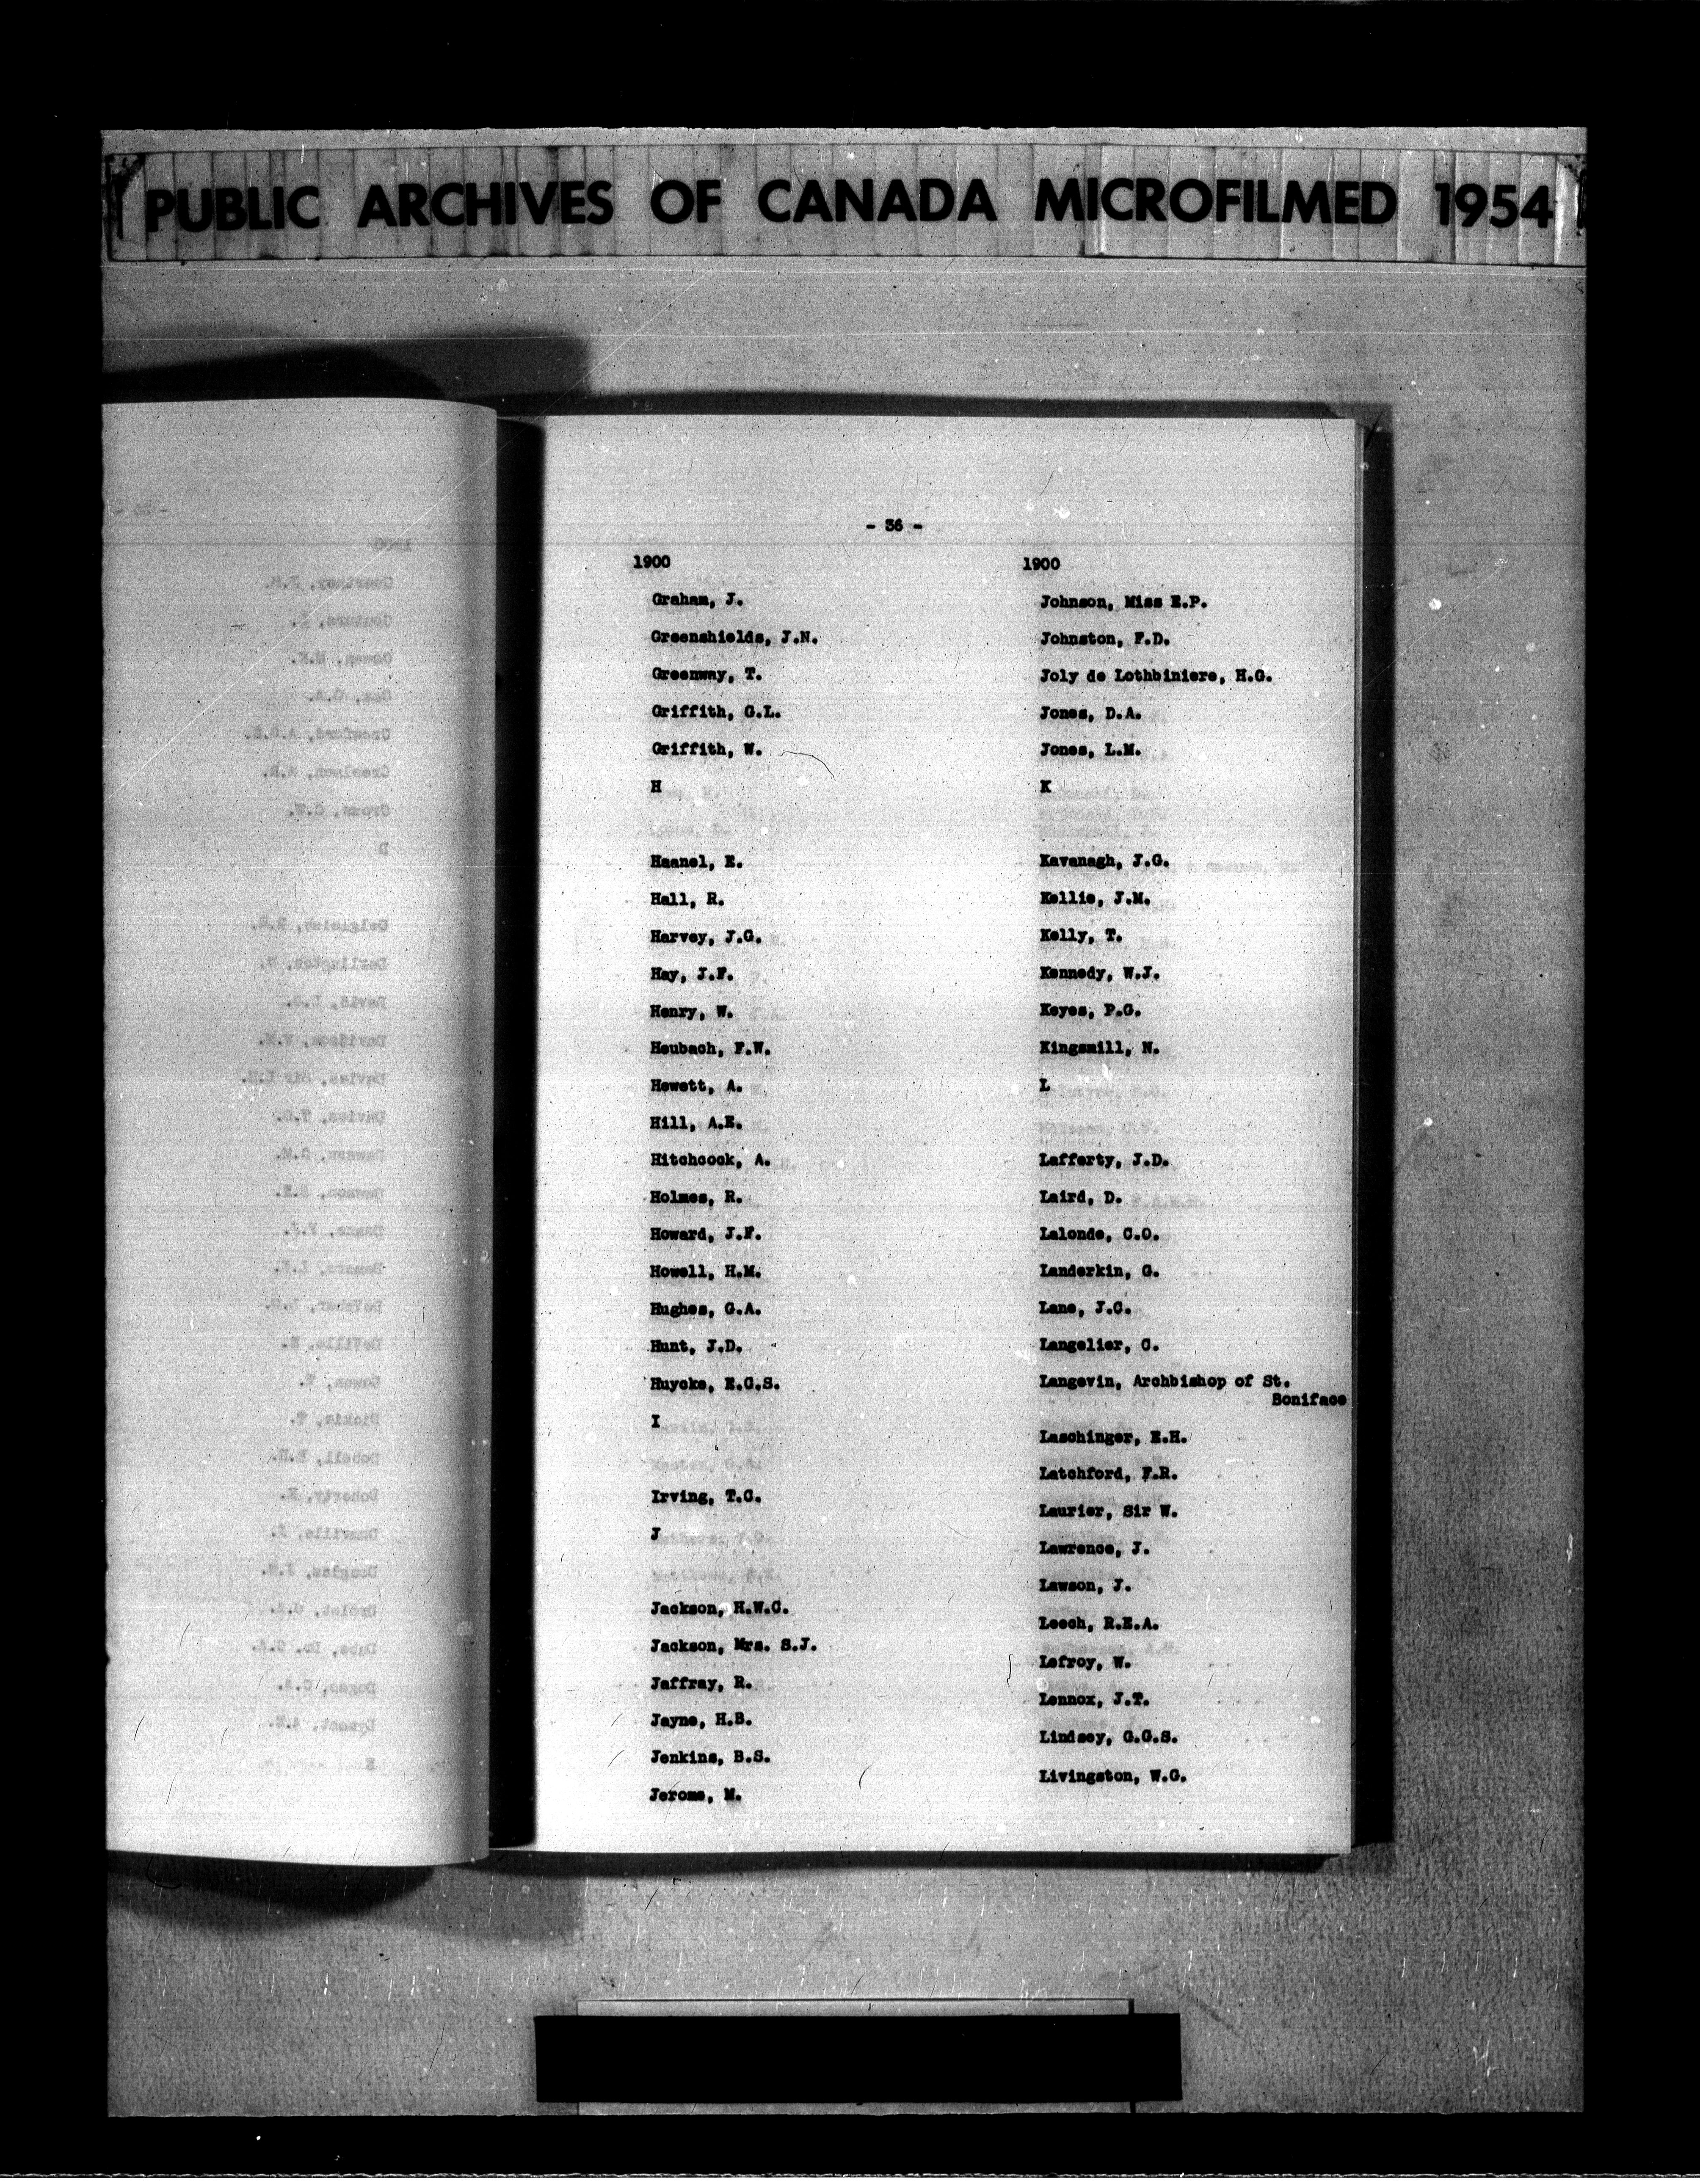 PUBLIC ARCHIVES OF CANADA MICROFILMED 1954
- 36 -
1900
Graham, J.
Greenshields, J.N.
Greenway, T.
Griffith, G.L.
Griffith, W.
H
Haanel, E.
Hall, R.
Harvey, J.G.
Hay, J.F.
Henry, W.
Heubach, F.W.
Hewett, A.
Hill, A.E.
Hitchcock, A.
Holmes, R.
Howard, J.F.
Howell, H.M.
Hughes, G.A.
Hunt, J.D.
Huycke, E.C.S.
I
Irving, T.C.
J
Jackson, H.W.C.
Jackson, Mrs. S.J.
Jaffray, R.
Jayne, H.B.
Jenkins, B.S.
Jerome, M.
1900
Johnson, Miss E.P.
Johnston, F.D.
Joly de Lothbiniere, H.G.
Jones, D.A.
Jones, L.M.
K
Kavanagh, J.G.
Kellie, J.M.
Kelly, T.
Kennedy, W.J.
Keyes, P.G.
Kingsmill, N.
L
Lafferty, J.D.
Laird, D.
Lalonde, C.O.
Landerkin, G.
Lane, J.C.
Langelier, C.
Langevin, Archbishop of St.
Boniface
Laschinger, E.H.
Latchford, F.R.
Laurier, Sir W.
Lawrence, J.
Lawson, J.
Leech, R.E.A.
Lefroy, W.
Lennox, J.T.
Lindsey, G.G.S.
Livingston, W.G.